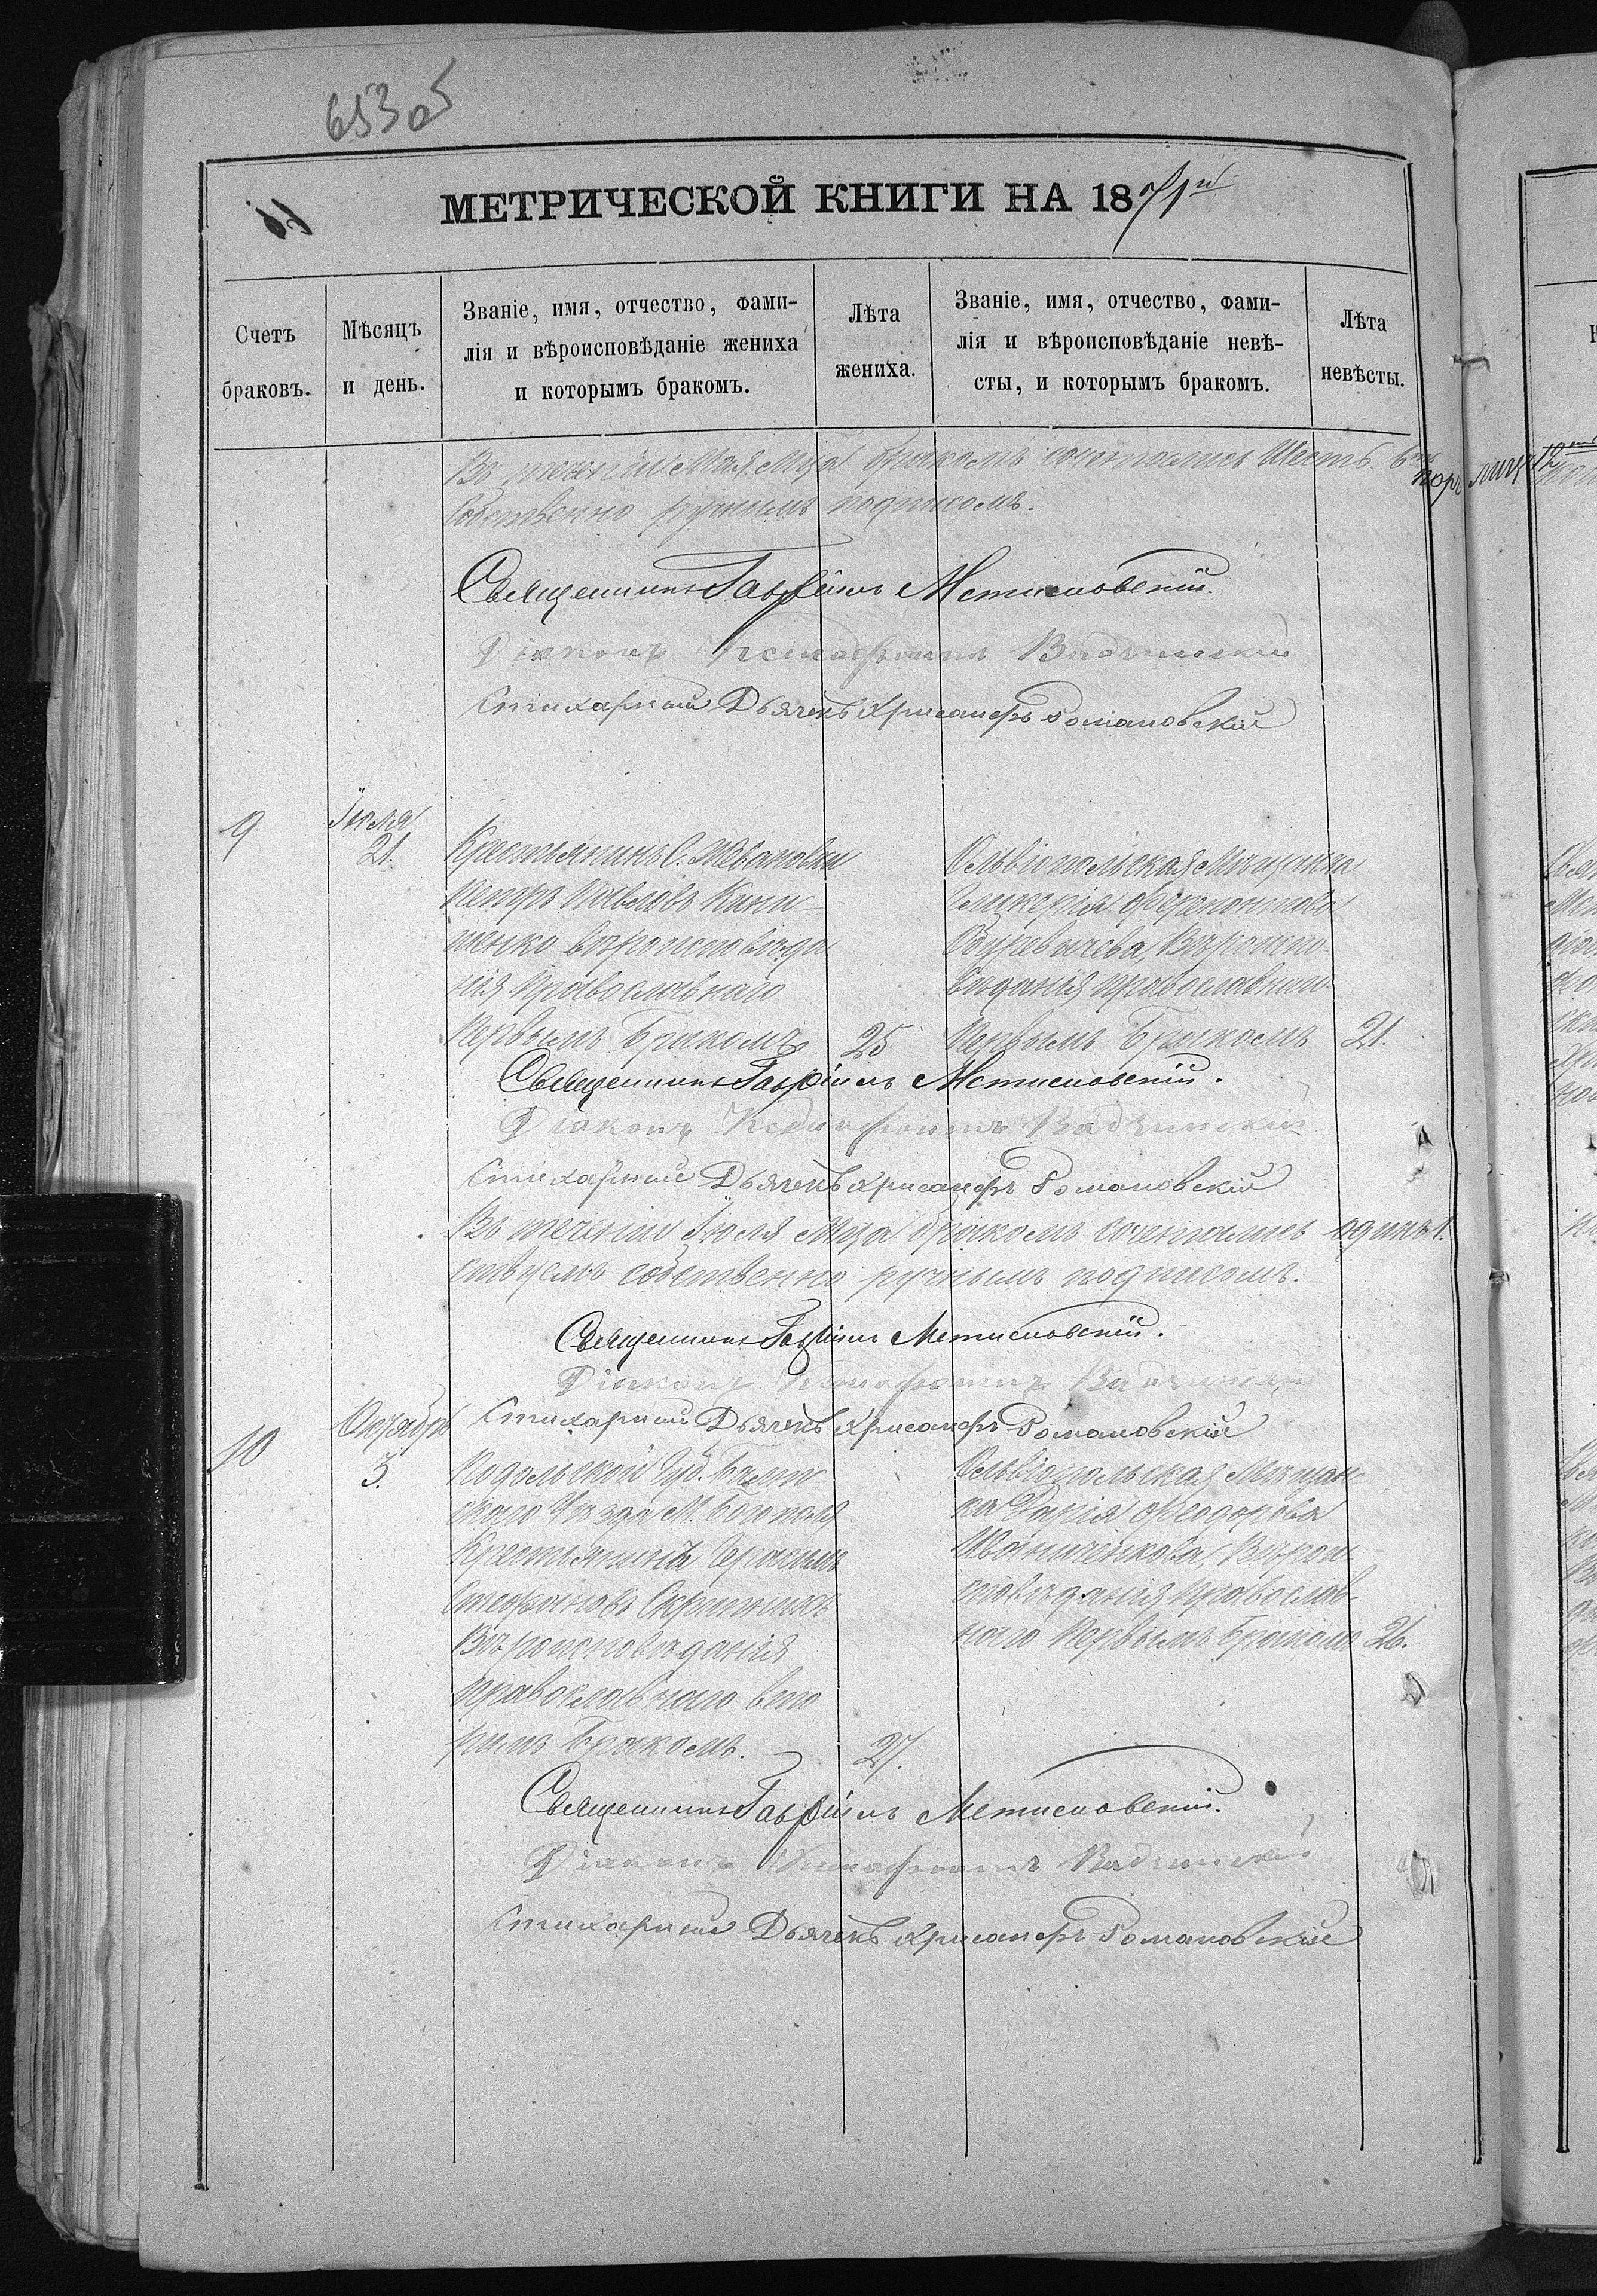 653об
МЕТРИЧЕСКОЙ КНИГИ НА 1871й
Счетъ браковъ.
Мѣсяцъ и день.
Званіе, имя, отчество, фами-
лія и вѣроисповѣданіе жениха
и которымъ бракомъ.
Лѣта жениха.
Званіе, имя, отчество, фами-
лія и вѣроисповѣданіе невѣ-
сты, и которымъ бракомъ.
Лѣта невѣсты.
Въ теченіи Мая Мца бракомъ сочетались Шесть 6
собственно ручнымъ подписомъ.
Священникъ Гавріилъ Мстиславскій.
Діаконъ Ксенофонтъ
Стихарный Дьячекъ Хрисанфъ Романовскій
9
Іюля
21.
Крестьянинъ С.
Петръ Павловъ
вѣроисповѣда
нія православнаго
Первымъ Бракомъ
25
Ольвіопольская Мѣщанка
Гликерія
Вѣроиспо-
вѣданія православнаго
Первымъ Бракомъ
21.
Священникъ Гавріилъ Мстиславскій.
Діаконъ Ксенофонтъ
Стихарный Дьячекъ Хрисанфъ Романовскій
Въ теченіи Іюля Мца бракомъ сочетались одинъ 1.
собственно ручнымъ подписомъ.
Священникъ Гавріилъ Мстиславскій.
Діаконъ Ксенофонтъ
Стихарный Дьячекъ Хрисанфъ Романовскій
10
Октября
3.
Подольской Губ. Балт-
скаго Уѣзда М. Богополя
Крестьянинъ Герасимъ
Стефановъ
Вѣроисповѣданія
православнаго вто
рымъ Бракомъ.
27.
Ольвіопольская Мѣщан-
ка Дарія Феодорова
Вѣрои-
сповѣданія Православ-
наго Первымъ Бракомъ
26.
Священникъ Гавріилъ Мстиславскій.
Діаконъ Ксенофонтъ
Стихарный Дьячекъ Хрисанфъ Романовскій